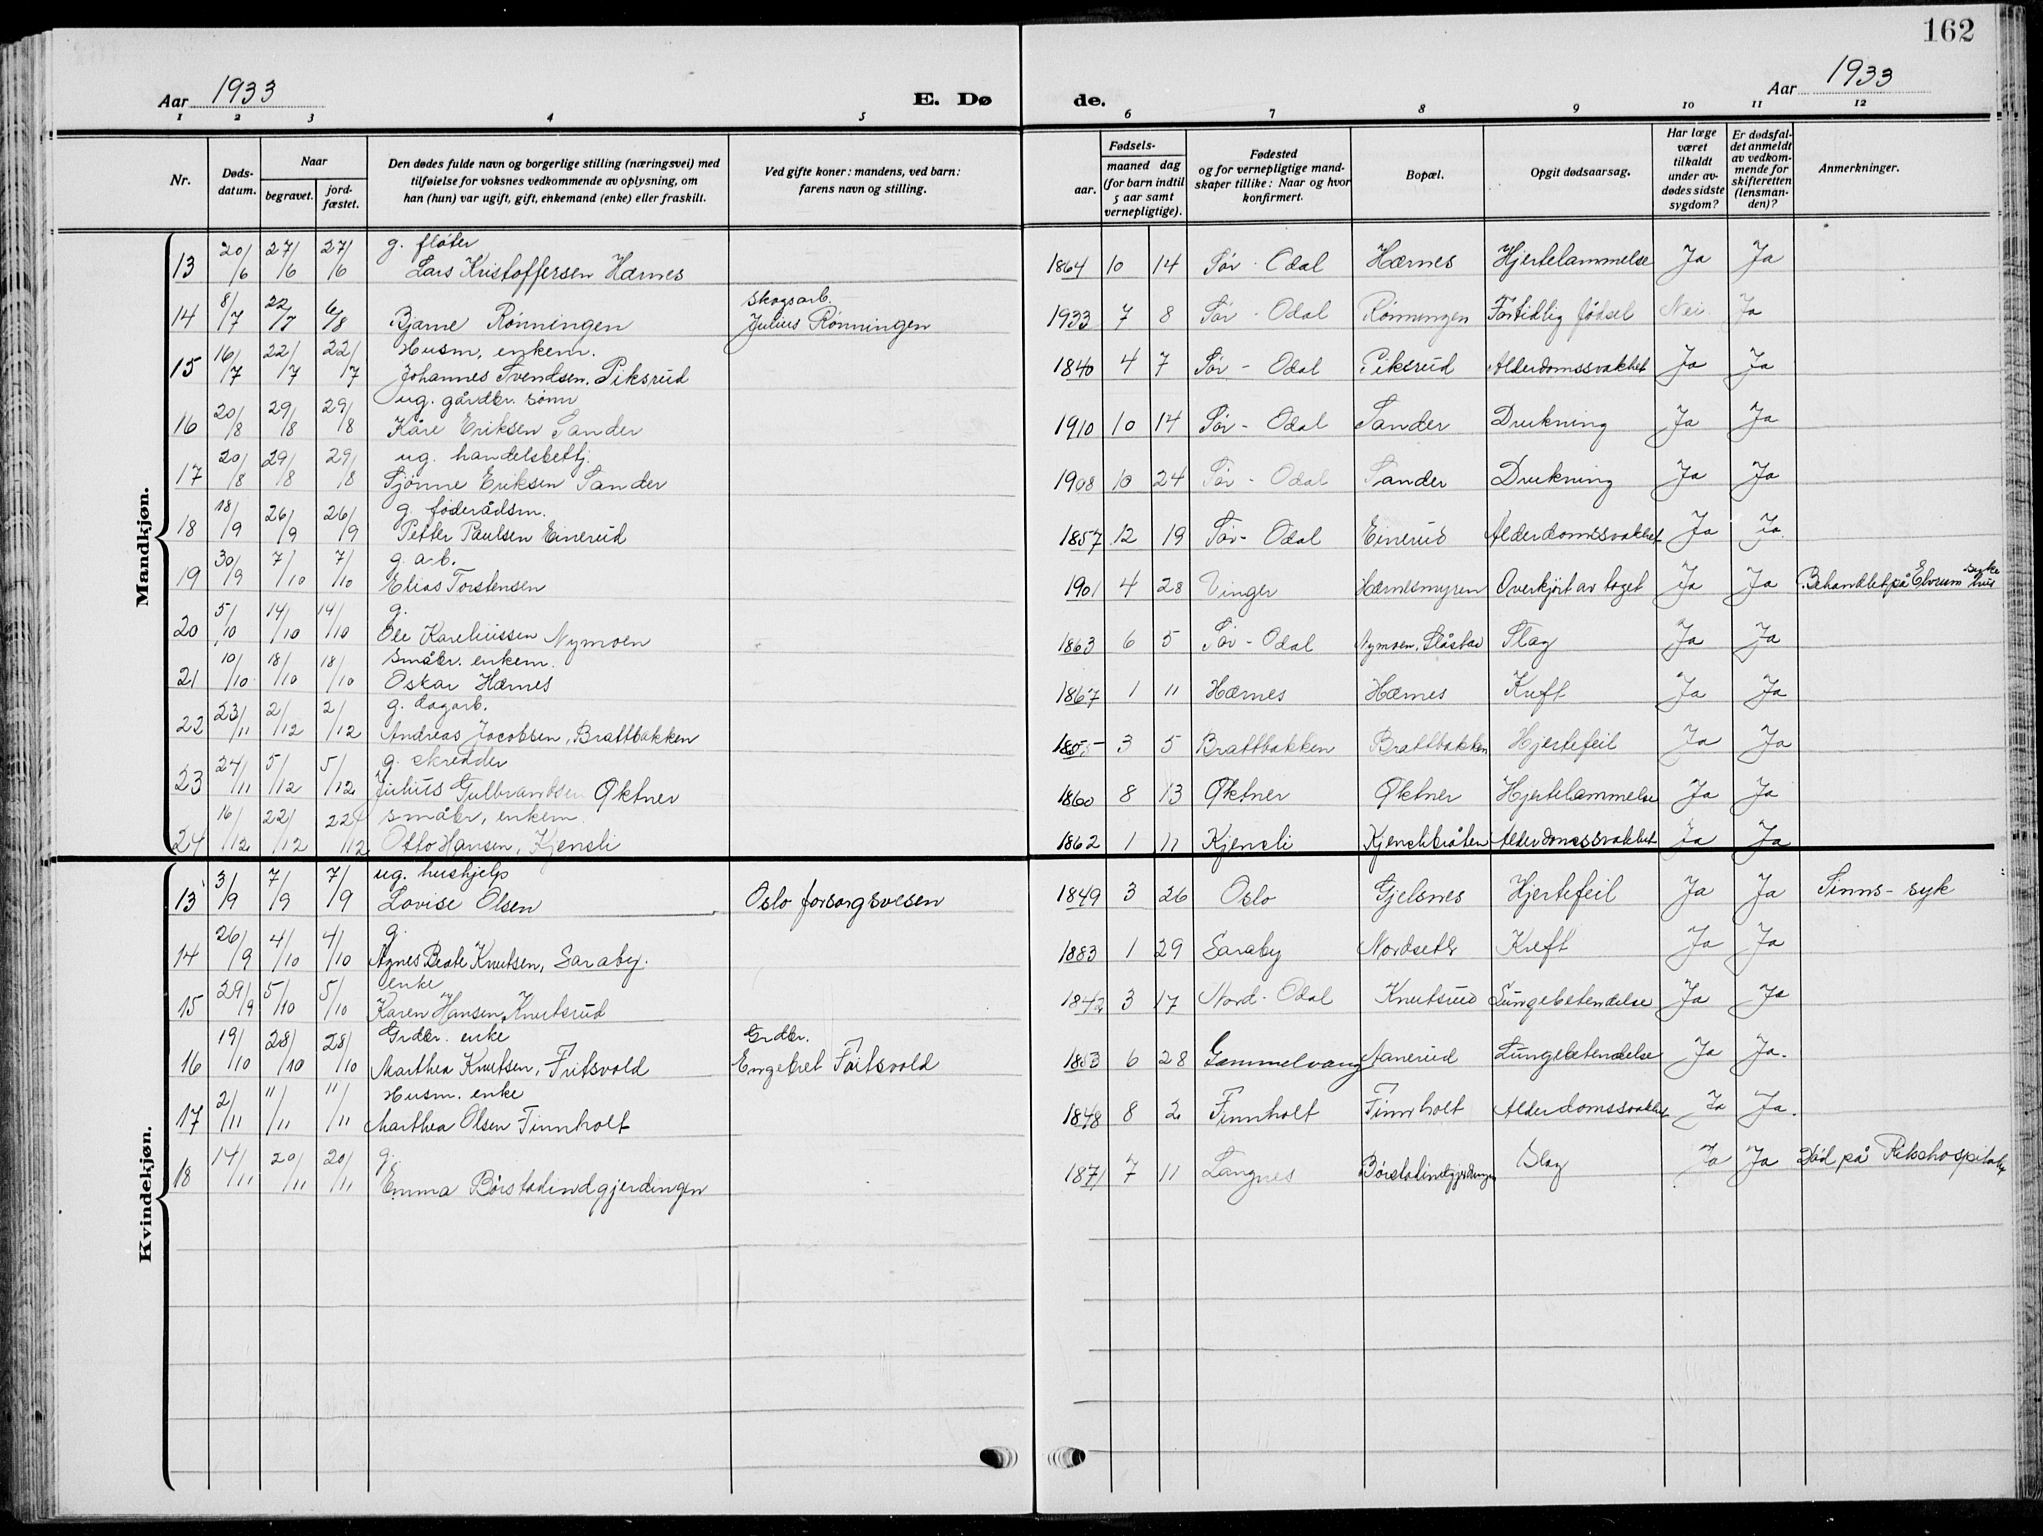 162
Aar 1933 E. Dø de. Aar 1933
1 2 3 4 5 6 7 8 9 10 11 12
Nr. Døds-datum. Naar begravet. jord-fæstet. Den dødes fulde navn og borgerlige stilling (næringsvei) med tilføielse for voksnes vedkommende av oplysning, om han (hun) var ugift, gift, enkemand (enke) eller fraskilt. Ved gifte koner: mandens, ved barn: farens navn og stilling. Fødsels- aar. maaned dag (for barn indtil 5 aar samt vernepligtige). Fødested og for vernepligtige mandskaper tillike: Naar og hvor konfirmert. Bopæl. Opgit dødsaarsag. Har læge været tilkaldt under avdødes sidste sygdom? Er dødsfaldet anmeldt av vedkommende for skifteretten (lensmanden)? Anmerkninger.
Mandkjøn.
g. fløter
13 20/6 27/6 27/6 Lars Kristoffersen Hærnes 1864 10 14 Sør-Odal Hærnes Hjertelammelse Ja Ja
skogsarb.
14 8/7 22/7 6/8 Bjarne Rønningen Julius Rønningen 1933 7 8 Sør-Odal Rønningen Fortidlig fødsel Nei Ja
Husm. enkem.
15 16/7 22/7 22/7 Johannes Svendsen, Piksrud 1840 4 7 Sør-Odal Piksrud Alderdomssvakhet Ja Ja
ug. gårdbr. sønn
16 20/8 29/8 29/8 Kåre Eriksen Sander 1910 10 14 Sør-Odal Sander Drukning Ja Ja
ug. handelsbettj.
17 20/8 29/8 29/8 Sjønne Eriksen Sander 1908 10 24 Sør-Odal Sander Drukning Ja Ja
g. føderådsm.
18 18/9 26/9 26/9 Petter Paulsen Einerud 1857 12 19 Sør-Odal Einerud Alderdomssvakhet Ja Ja.
g. arb.
19 30/9 7/10 7/10 Elias Torstensen 1901 4 28 Vinger Hærnesmyren Overkjørt av toget Ja Ja Behandlet på Elverum sykehus
g.
20 5/10 14/10 14/10 Ole Kareliussen Nymoen 1863 6 5 Sør-Odal Nymoen, Slåstad Slag Ja Ja
småbr. enkem.
21 10/10 18/10 18/10 Oskar Hærnes 1867 1 11 Hærnes Hærnes Kreft Ja Ja
g. dagarb.
22 23/11 2/12 2/12 Andreas Jacobsen, Brattbakken 1855 3 5 Brattbakken Brattbakken Hjertefeil Ja Ja
g. skredder
23 24/11 5/12 5/12 Julius Gulbrandsen Øktner 1860 8 13 Øktner Øktner Hjertelammelse Ja Ja
småbr, enkem.
24 16/12 22/12 22/12 Otto Hansen, Kjensli 1862 1 11 Kjensli Kjenslibråten Alderdomssvakhet Ja Ja
Kvindekjøn.
ug. hushjelp
13 3/9 7/9 7/9 Lovise Olsen Oslo forsorgsvesen 1849 3 26 Oslo Gjelsnes Hjertefeil Ja Ja Sinns-syk
g.
14 26/9 4/10 4/10 Agnes Beate Knutsen, Saraby. 1883 1 29 Saraby Nordseter Kreft Ja Ja
enke
15 29/9 5/10 5/10 Karen Hansen Knutsrud 1842 3 17 Nord-Odal Knutsrud Lungebetendelse Ja Ja
Grdbr. enke Grdbr.
16 19/10 28/10 28/10 Marthea Knutsen, Fritsvold Engebret Fritsvold 1853 6 28 Gammelvang Aanerud Lungebetendelse Ja Ja.
Husm. enke
17 2/11 11/11 11/11 Marthea Olsen Finnholt 1848 8 2 Finnholt Finnholt Alderdomssvakhet Ja Ja.
g.
18 14/11 20/11 20/11 Emma Børstadindgjerdingen 1871 7 11 Langnes Børstadindgjerdingen Slag Ja Ja Død på Rikshospitalet